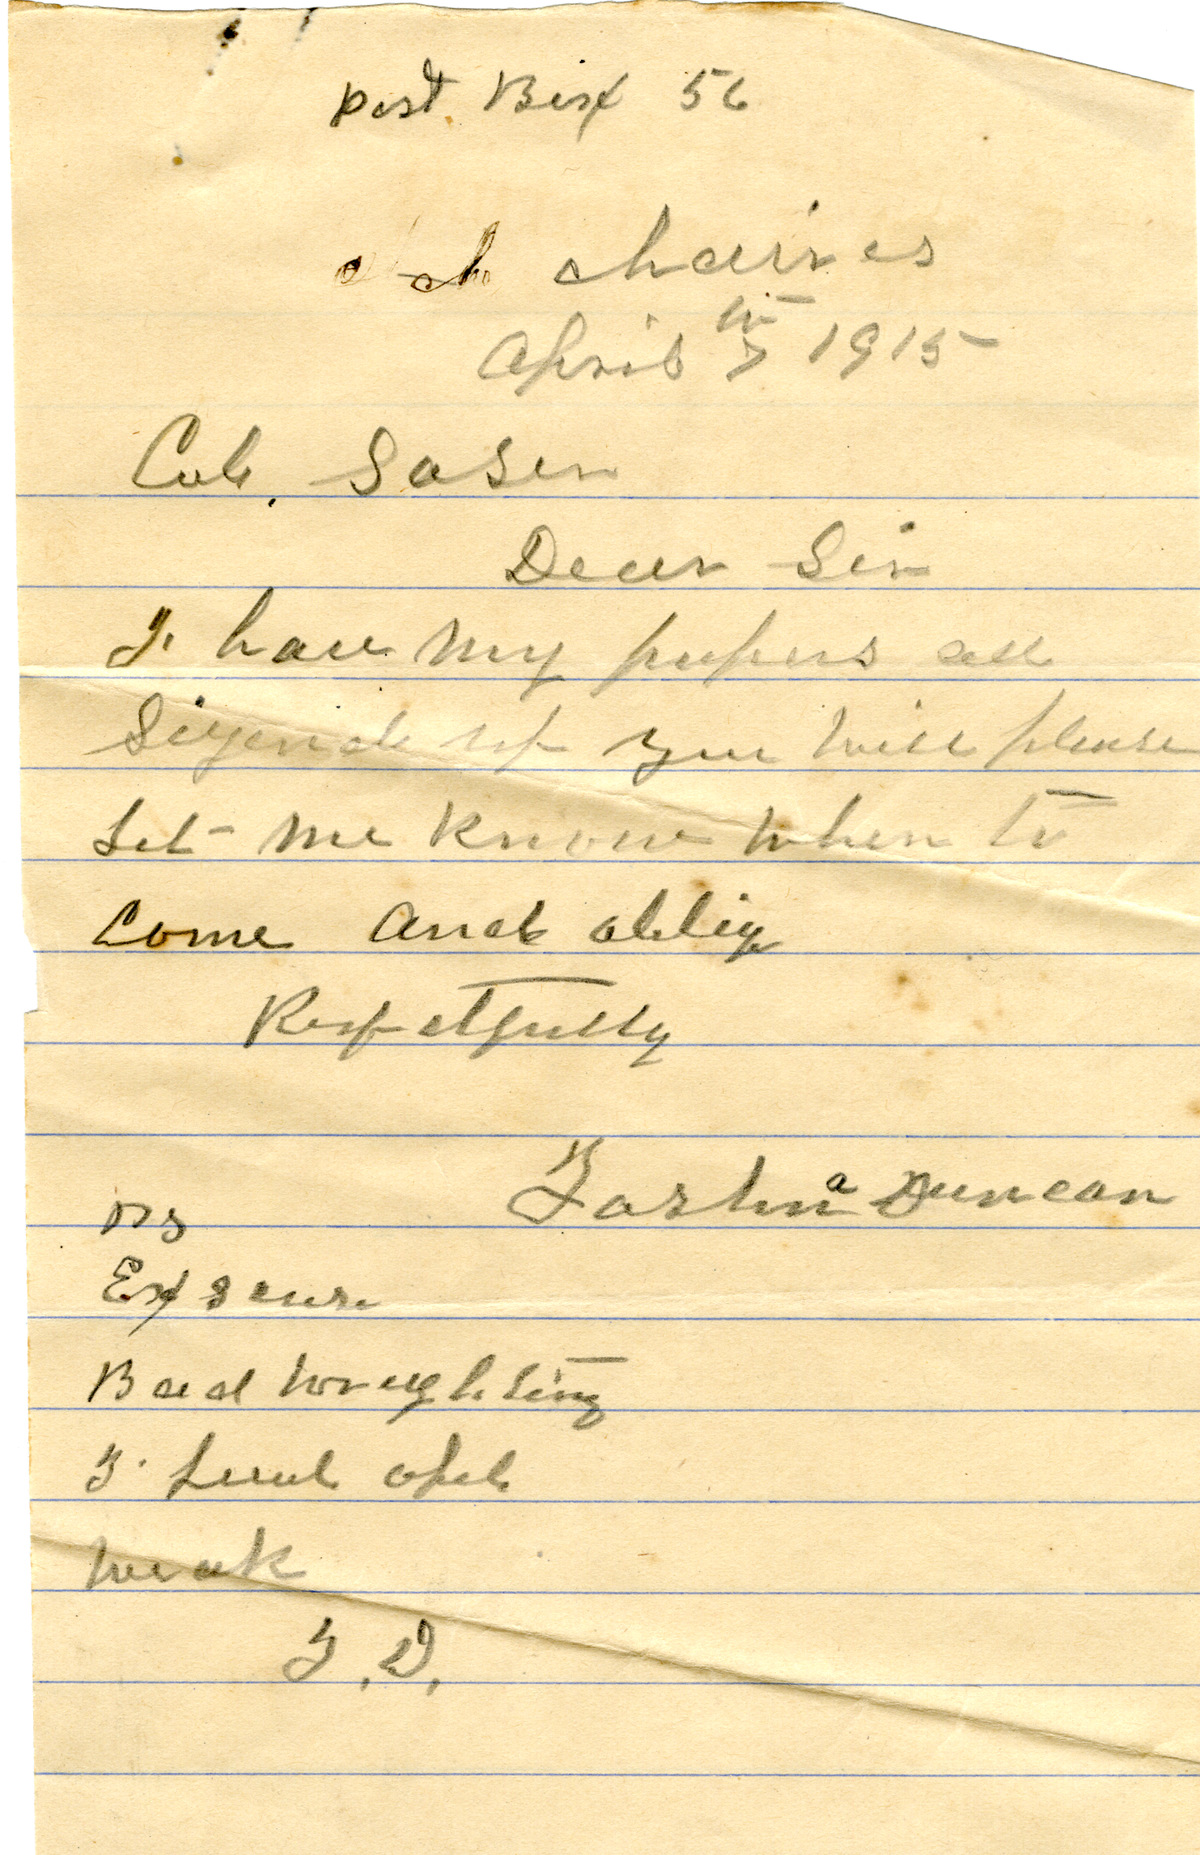 Post Box 56
charres
April 7 1915
Col. Sasen
Dear Sir
I. have my papers all
Sigend up you will please
Let me know when to
Come and oblig
Respetfully
Duncan
PS
Exscuse
Bad wrughting
I. feul ofel
weak
J. D.